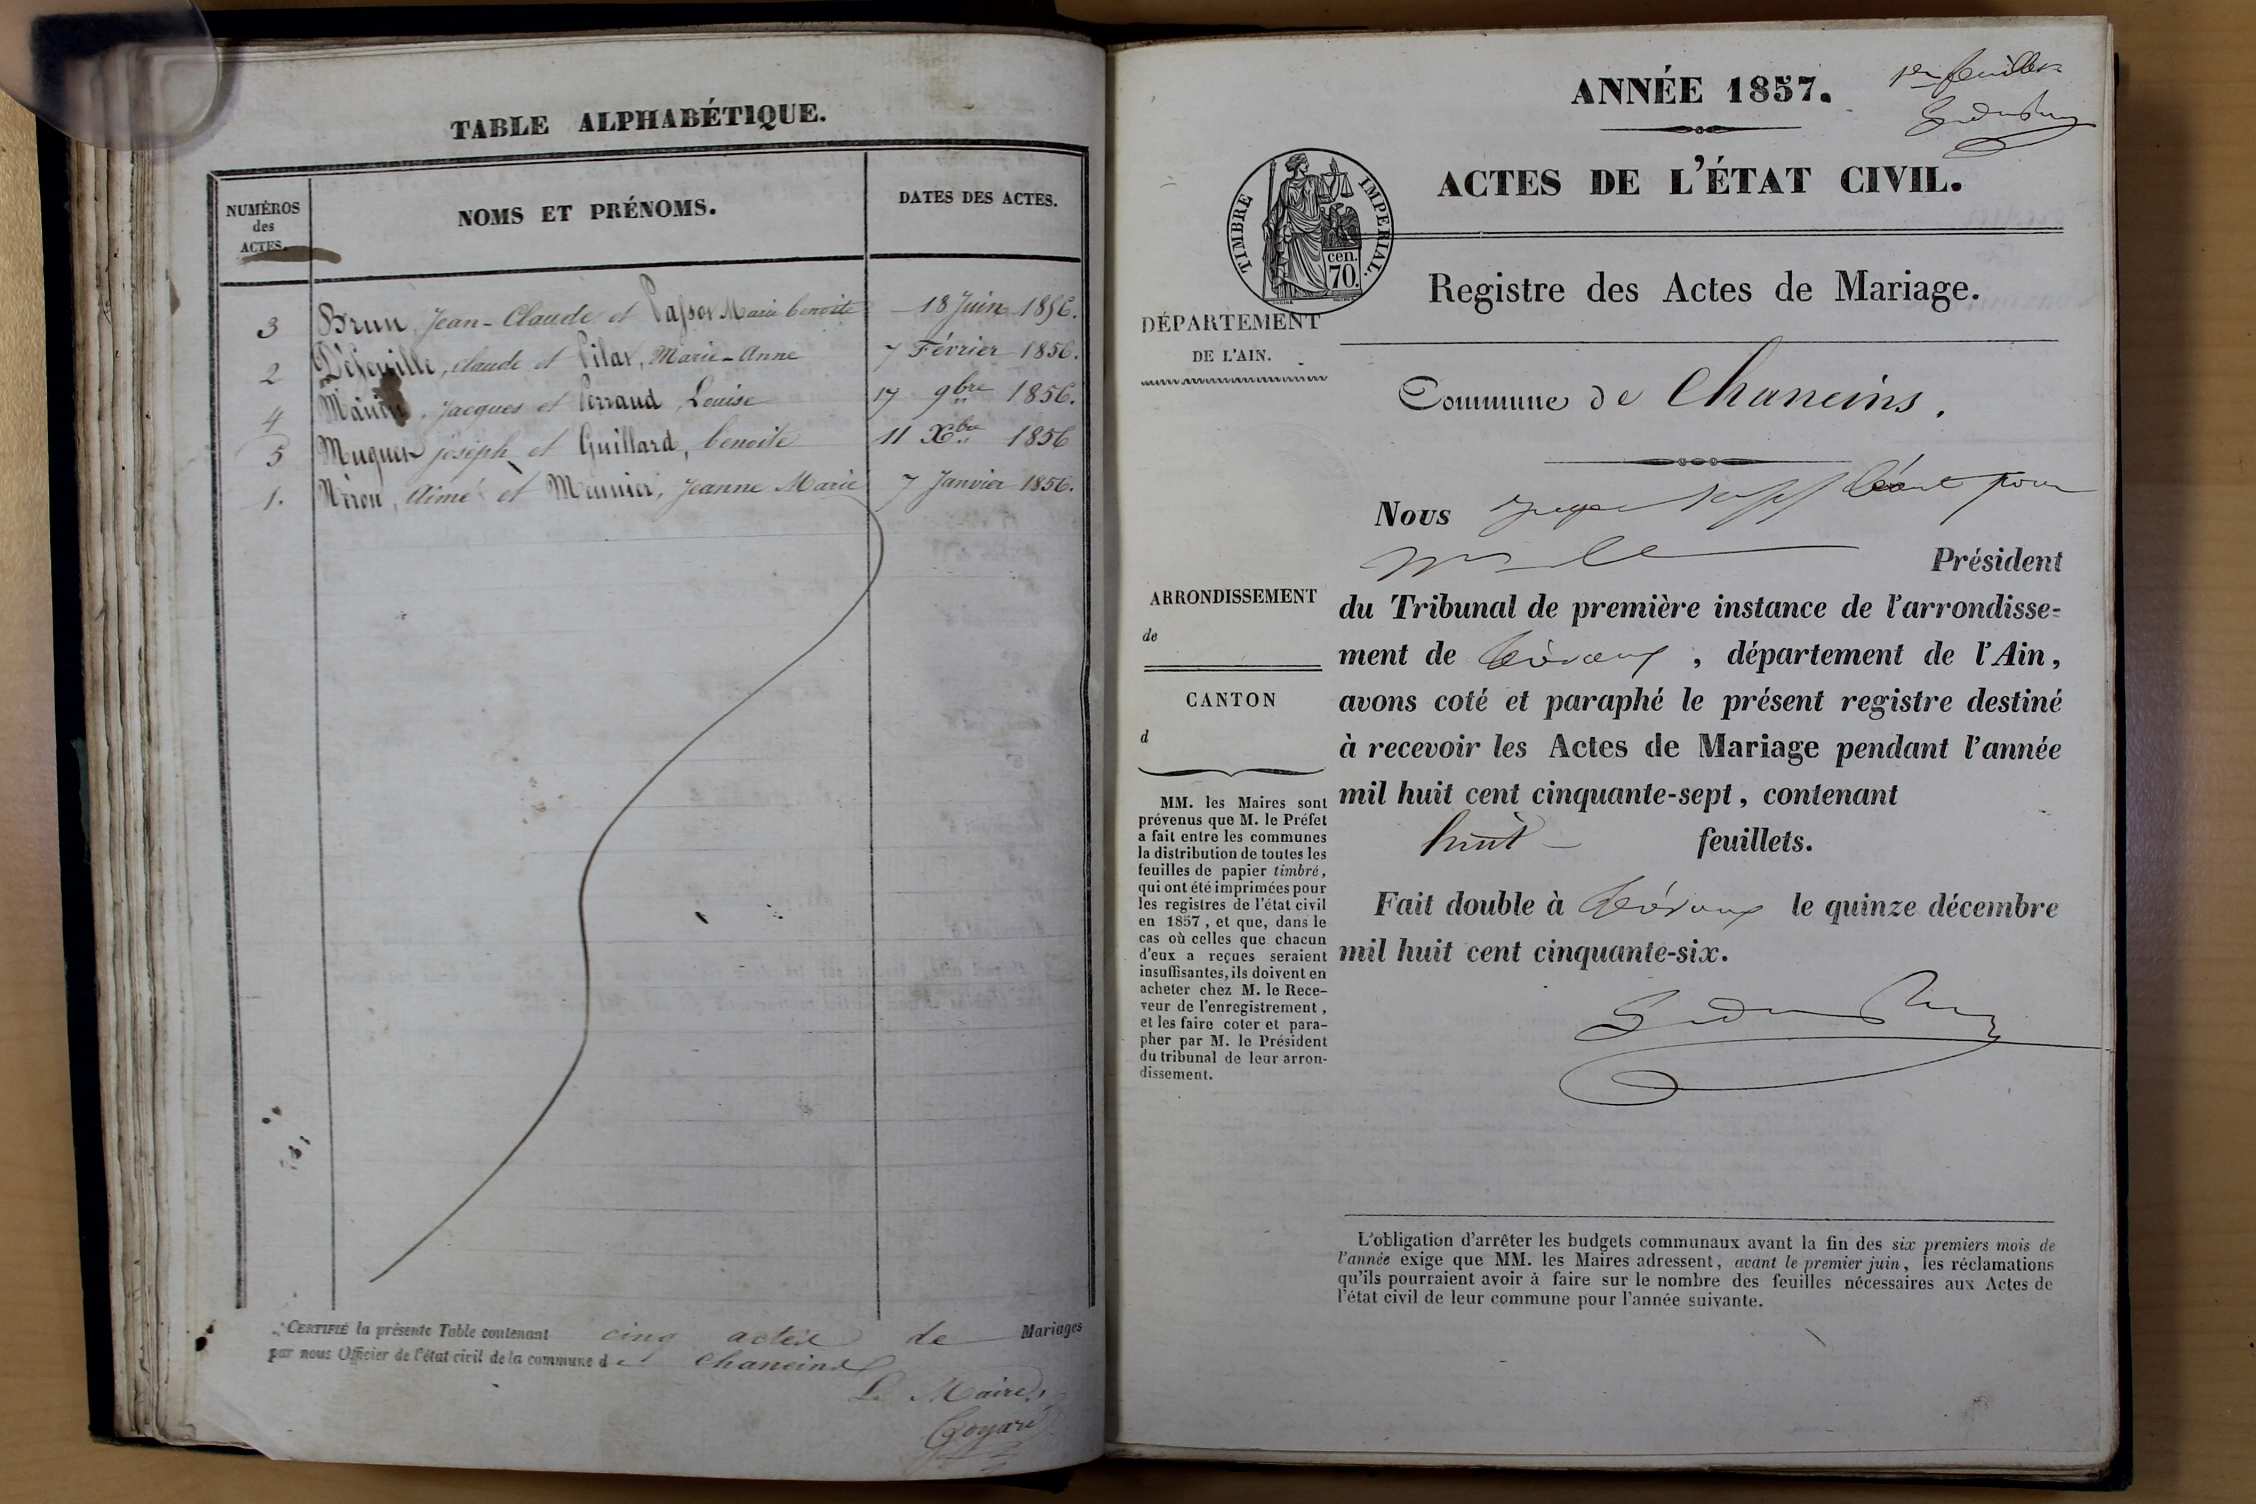 TABLE ALPHABÉTIQUE.
NUMÉROS
des
ACTES.
NOMS ET PRÉNOMS.
DATES DES ACTES.
3 Brun, Jean-Claude et Passot Marie benoite 18 Juin 1856.
2 claude et Pilat, Marie-Anne 7 Février 1856.
4 Jacques et Perraud, Louise 17 9bre 1856.
5 Muguet joseph et Guillard, benoite 11 Xbre 1856
1. Néron, Aimé et Meunier, Jeanne Marie 7 Janvier 1856.
CERTIFIÉ la présente Table contenant cinq actes de Mariages
par nous Officier de l'état civil de la commune de Chaneins
Le Maire,
Goyard
1er feuillet
ANNÉE 1857.
ACTES DE L'ÉTAT CIVIL.
TIMBRE IMPERIAL.
70.
cen.
Registre des Actes de Mariage.
DÉPARTEMENT
DE L'AIN.
Commune de Chaneins.
Nous juge suppléant pour
Président
du Tribunal de première instance de l'arrondisse-
ment de Trévoux, département de l'Ain,
avons coté et paraphé le présent registre destiné
à recevoir les Actes de Mariage pendant l'année
mil huit cent cinquante-sept, contenant
huit feuillets.
Fait double à Trévoux le quinze décembre
mil huit cent cinquante-six.
ARRONDISSEMENT
de
CANTON
d
MM. les Maires sont
prévenus que M. le Préfet
a fait entre les communes
la distribution de toutes les
feuilles de papier timbré,
qui ont été imprimées pour
les registres de l'état civil
en 1857, et que, dans le
cas où celles que chacun
d'eux a reçues seraient
insuffisantes, ils doivent en
acheter chez M. le Rece-
veur de l'enregistrement,
et les faire coter et para-
pher par M. le Président
du tribunal de leur arron-
dissement.
L'obligation d'arrêter les budgets communaux avant la fin des six premiers mois de
l'année exige que MM. les Maires adressent, avant le premier juin, les réclamations
qu'ils pourraient avoir à faire sur le nombre des feuilles nécessaires aux Actes de
l'état civil de leur commune pour l'année suivante.